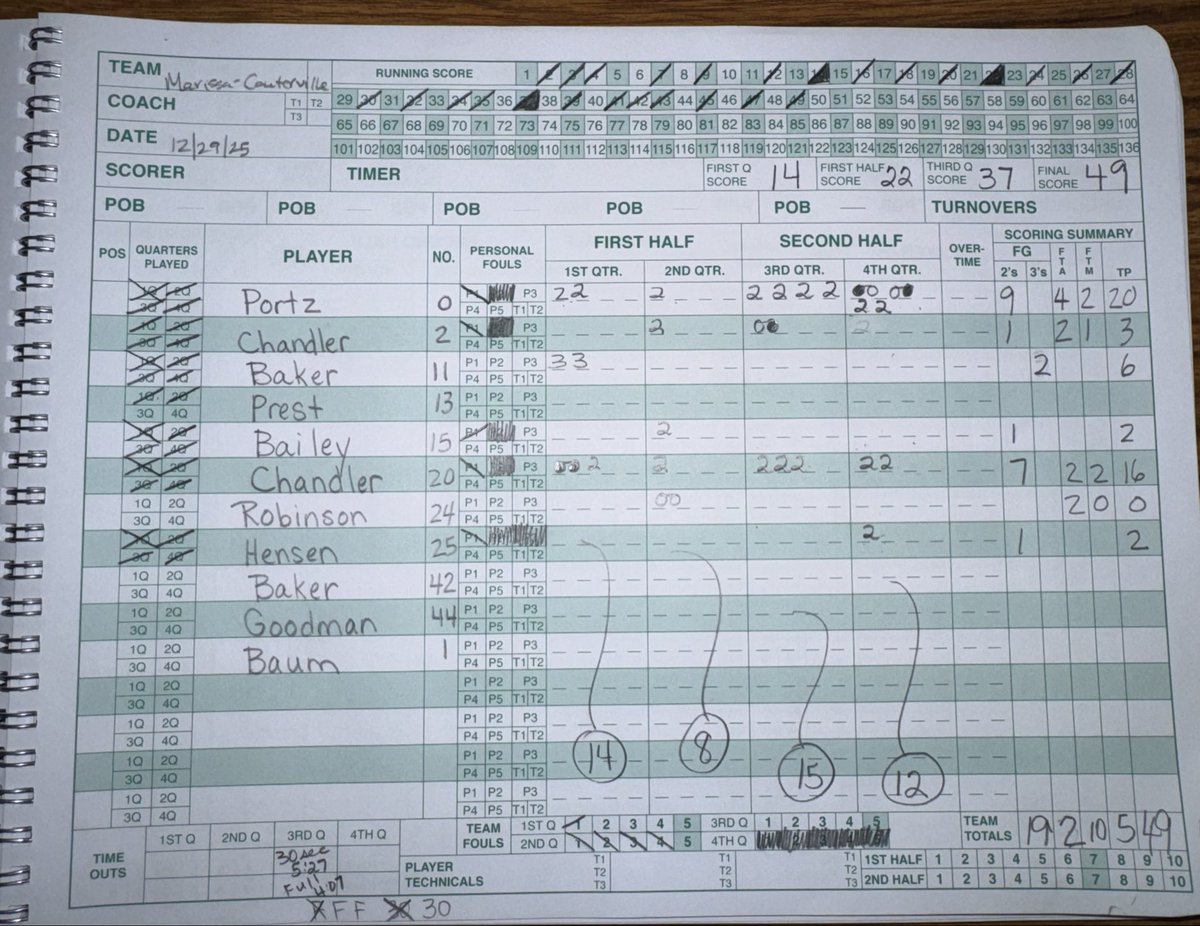 TEAM Marissa-Coulterville RUNNING SCORE 1 2 3 4 5 6 7 8 9 10 11 12 13 14 15 16 17 18 19 20 21 22 23 24 25 26 27 28
COACH T1 T2 T3 29 30 31 32 33 34 35 36 37 38 39 40 41 42 43 44 45 46 47 48 49 50 51 52 53 54 55 56 57 58 59 60 61 62 63 64
65 66 67 68 69 70 71 72 73 74 75 76 77 78 79 80 81 82 83 84 85 86 87 88 89 90 91 92 93 94 95 96 97 98 99 100
DATE 12/29/25 101 102 103 104 105 106 107 108 109 110 111 112 113 114 115 116 117 118 119 120 121 122 123 124 125 126 127 128 129 130 131 132 133 134 135 136
SCORER TIMER FIRST Q SCORE 14 FIRST HALF SCORE 22 THIRD Q SCORE 37 FINAL SCORE 49
POB POB POB POB POB TURNOVERS
POS QUARTERS PLAYED PLAYER NO. PERSONAL FOULS FIRST HALF SECOND HALF OVER-TIME SCORING SUMMARY
1ST QTR. 2ND QTR. 3RD QTR. 4TH QTR. FG 2's 3's FTA FTM TP
1Q 2Q 3Q 4Q Portz 0 P3 P4 P5 T1 T2 2 2 2 2 2 2 2 2 2 9 4 2 20
1Q 2Q 3Q 4Q Chandler 2 P3 P4 P5 T1 T2 2 1 2 1 3
1Q 2Q 3Q 4Q Baker 11 P1 P2 P3 P4 P5 T1 T2 3 3 2 6
1Q 2Q 3Q 4Q Prest 13 P1 P2 P3 P4 P5 T1 T2
1Q 2Q 3Q 4Q Bailey 15 P1 P3 P4 P5 T1 T2 2 1 2
1Q 2Q 3Q 4Q Chandler 20 P3 P4 P5 T1 T2 2 2 2 2 2 2 2 7 2 2 16
1Q 2Q 3Q 4Q Robinson 24 P1 P2 P3 P4 P5 T1 T2 0 0 2 0 0
1Q 2Q 3Q 4Q Hensen 25 P1 P4 P5 T1 T2 2 1 2
1Q 2Q 3Q 4Q Baker 42 P1 P2 P3 P4 P5 T1 T2
1Q 2Q 3Q 4Q Goodman 44 P1 P2 P3 P4 P5 T1 T2
1Q 2Q 3Q 4Q Baum 1 P1 P2 P3 P4 P5 T1 T2
1Q 2Q 3Q 4Q P1 P2 P3 P4 P5 T1 T2
1Q 2Q 3Q 4Q P1 P2 P3 P4 P5 T1 T2
1Q 2Q 3Q 4Q P1 P2 P3 P4 P5 T1 T2 14 8 15 12
1Q 2Q 3Q 4Q P1 P2 P3 P4 P5 T1 T2
TIME OUTS 1ST Q 2ND Q 3RD Q 4TH Q TEAM FOULS 1ST Q 1 2 3 4 5 3RD Q 1 2 3 4 5 TEAM TOTALS 19 2 10 5 49
2ND Q 1 2 3 4 5 4TH Q
30 sec 5:27
Full 4:07
PLAYER TECHNICALS T1 T2 T3 T1 T2 T3 T1 T2 T3 1ST HALF 1 2 3 4 5 6 7 8 9 10
2ND HALF 1 2 3 4 5 6 7 8 9 10
F F 30